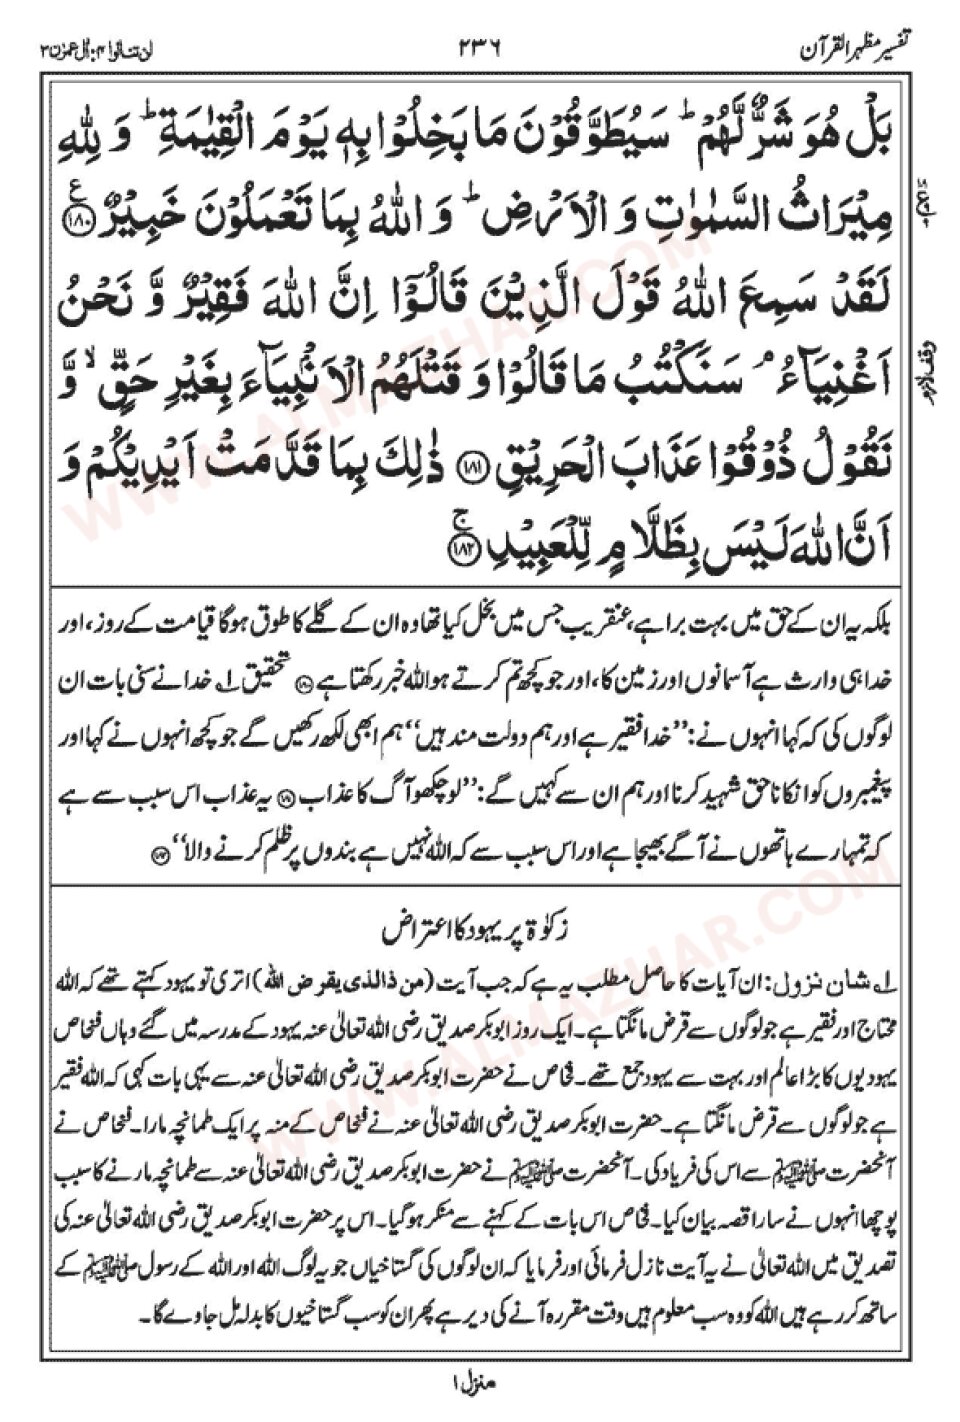 تفسیر مظہر القرآن
۲۳۶
لن تنالوا ۴: اٰل عمرٰن ۳
بَلْ هُوَ شَرٌّ لَّهُمْ ؕ سَيُطَوَّقُوْنَ مَا بَخِلُوْا بِهٖ يَوْمَ الْقِيٰمَةِ ؕ وَ لِلّٰهِ
مِيْرَاثُ السَّمٰوٰتِ وَ الْاَرْضِ ؕ وَ اللّٰهُ بِمَا تَعْمَلُوْنَ خَبِيْرٌ ﴿۱۸۰﴾ ع
لَقَدْ سَمِعَ اللّٰهُ قَوْلَ الَّذِيْنَ قَالُوْۤا اِنَّ اللّٰهَ فَقِيْرٌ وَّ نَحْنُ
اَغْنِيَآءُ ۘ سَنَكْتُبُ مَا قَالُوْا وَ قَتْلَهُمُ الْاَنْۢبِيَآءَ بِغَيْرِ حَقٍّ ۙ وَّ
وقف لازم
نَقُوْلُ ذُوْقُوْا عَذَابَ الْحَرِيْقِ ﴿۱۸۱﴾ ذٰلِكَ بِمَا قَدَّمَتْ اَيْدِيْكُمْ وَ
اَنَّ اللّٰهَ لَيْسَ بِظَلَّامٍ لِّلْعَبِيْدِ ﴿۱۸۲﴾ ج
بلکہ یہ ان کے حق میں بہت برا ہے، عنقریب جس میں بخل کیا تھا وہ ان کے گلے کا طوق ہوگا قیامت کے روز، اور
خدا ہی وارث ہے آسمانوں اور زمین کا، اور جو کچھ تم کرتے ہو اللہ خبر رکھتا ہے ﴿۱۸۰﴾ تحقیق ۱ے خدا نے سنی بات ان
لوگوں کی کہ کہا انہوں نے: ’’خدا فقیر ہے اور ہم دولت مند ہیں‘‘ ہم ابھی لکھ رکھیں گے جو کچھ انہوں نے کہا اور
پیغمبروں کو انکا ناحق شہید کرنا اور ہم ان سے کہیں گے: ’’لو چکھو آگ کا عذاب ﴿۱۸۱﴾ یہ عذاب اس سبب سے ہے
کہ تمہارے ہاتھوں نے آگے بھیجا ہے اور اس سبب سے کہ اللہ نہیں ہے بندوں پر ظلم کرنے والا‘‘ ﴿۱۸۲﴾
زکوٰۃ پر یہود کا اعتراض
۱ے شان نزول: ان آیات کا حاصل مطلب یہ ہے کہ جب آیت (من ذالذی یقرض اللہ) اتری تو یہود کہتے تھے کہ اللہ
محتاج اور فقیر ہے جو لوگوں سے قرض مانگتا ہے۔ ایک روز ابوبکر صدیق رضی اللہ تعالیٰ عنہ یہود کے مدرسہ میں گئے وہاں فنحاص
یہودیوں کا بڑا عالم اور بہت سے یہود جمع تھے۔ فنحاص نے حضرت ابوبکر صدیق رضی اللہ تعالیٰ عنہ سے یہی بات کہی کہ اللہ فقیر
ہے جو لوگوں سے قرض مانگتا ہے۔ حضرت ابوبکر صدیق رضی اللہ تعالیٰ عنہ نے فنحاص کے منہ پر ایک طمانچہ مارا۔ فنحاص نے
آنحضرت ﷺ سے اس کی فریاد کی۔ آنحضرت ﷺ نے حضرت ابوبکر صدیق رضی اللہ تعالیٰ عنہ سے طمانچہ مارنے کا سبب
پوچھا انہوں نے سارا قصہ بیان کیا۔ فنحاص اس بات کے کہنے سے منکر ہوگیا۔ اس پر حضرت ابوبکر صدیق رضی اللہ تعالیٰ عنہ کی
تصدیق میں اللہ تعالیٰ نے یہ آیت نازل فرمائی اور فرمایا کہ ان لوگوں کی گستاخیاں جو یہ لوگ اللہ اور اللہ کے رسول ﷺ کے
ساتھ کر رہے ہیں اللہ کو وہ سب معلوم ہیں وقت مقررہ آنے کی دیر ہے پھر ان کو سب گستاخیوں کا بدلہ مل جاوے گا۔
منزل ۱
WWW.ALMAZHAR.COM
WWW.ALMAZHAR.COM